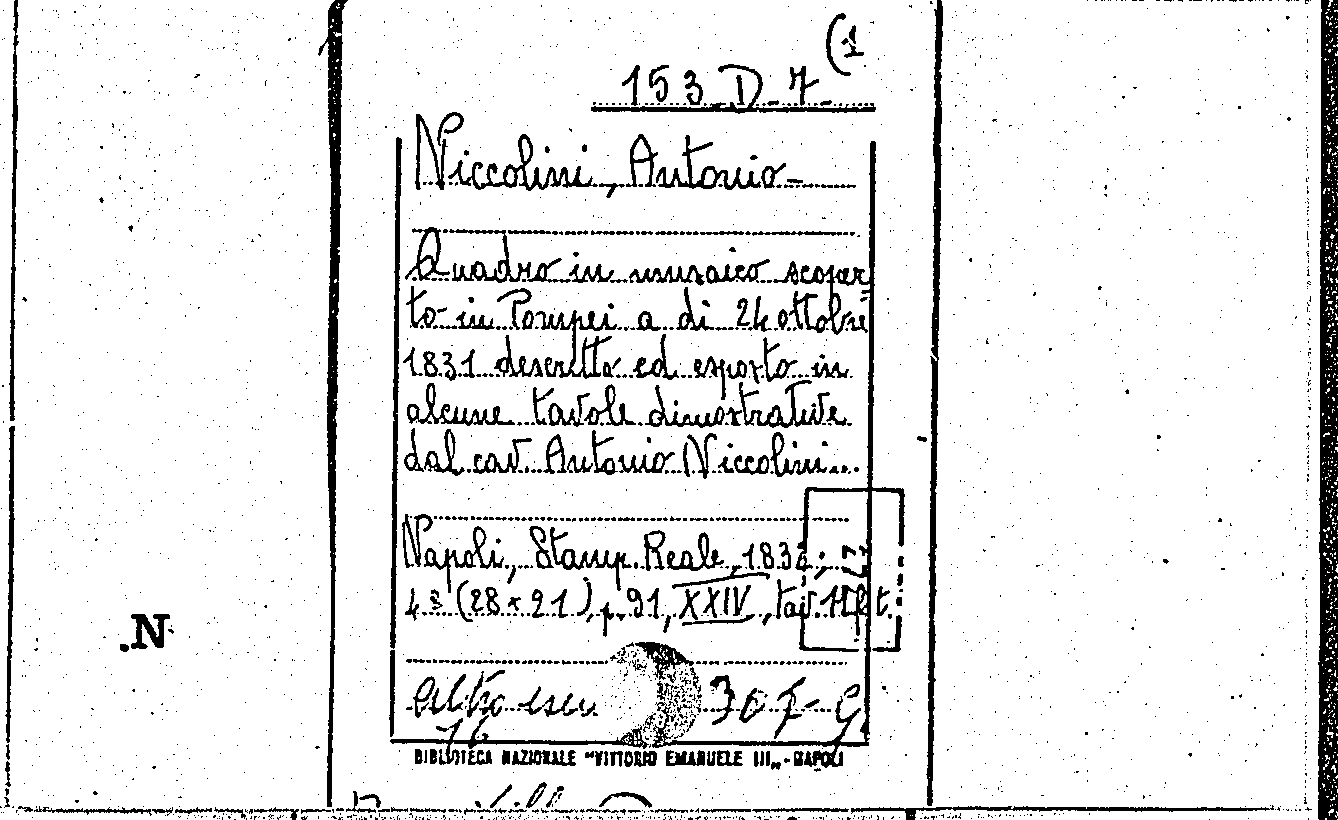 (1
153.D.7
Niccolini, Antonio-
Quadro in musaico scoper=
to in Pompei a di 24 ottobre
1831 descritto ed esposto in
alcune tavole dimostrative
dal cav. Antonio Niccolini...
Napoli, Stamp. Reale, 1832;
4º (28×21), p. 91, XXIV, tav. f. t.
altro esem 307- G.
16
BIBLIOTECA NAZIONALE "VITTORIO EMANUELE III„ - NAPOLI
.N